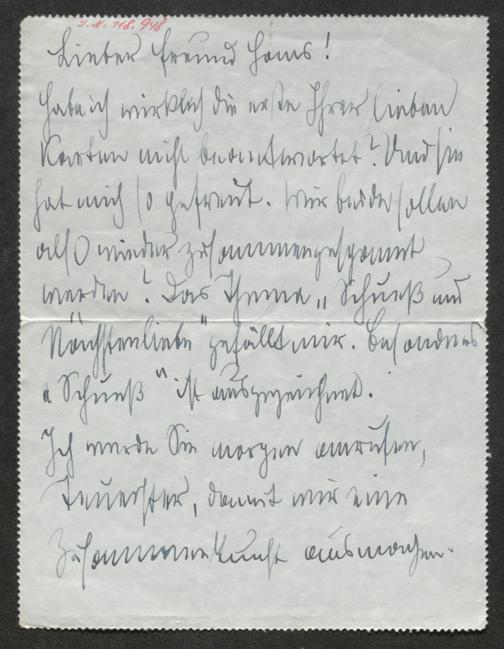 J. N. 118.948
Lieber Freund Hans!
Habe ich wirklich die erste Ihrer lieben
Karten nicht beantwortet? Und sie
hat mich so gefreut. Wir beide sollen
also wieder zusammengespannt
werden? Das Thema „ und
Nächstenliebe" gefällt mir. Besonders
" ist ausgezeichnet.
Ich werde Sie morgen anrufen,
Teuerster, damit wir eine
Zusammenkunft ausmachen.